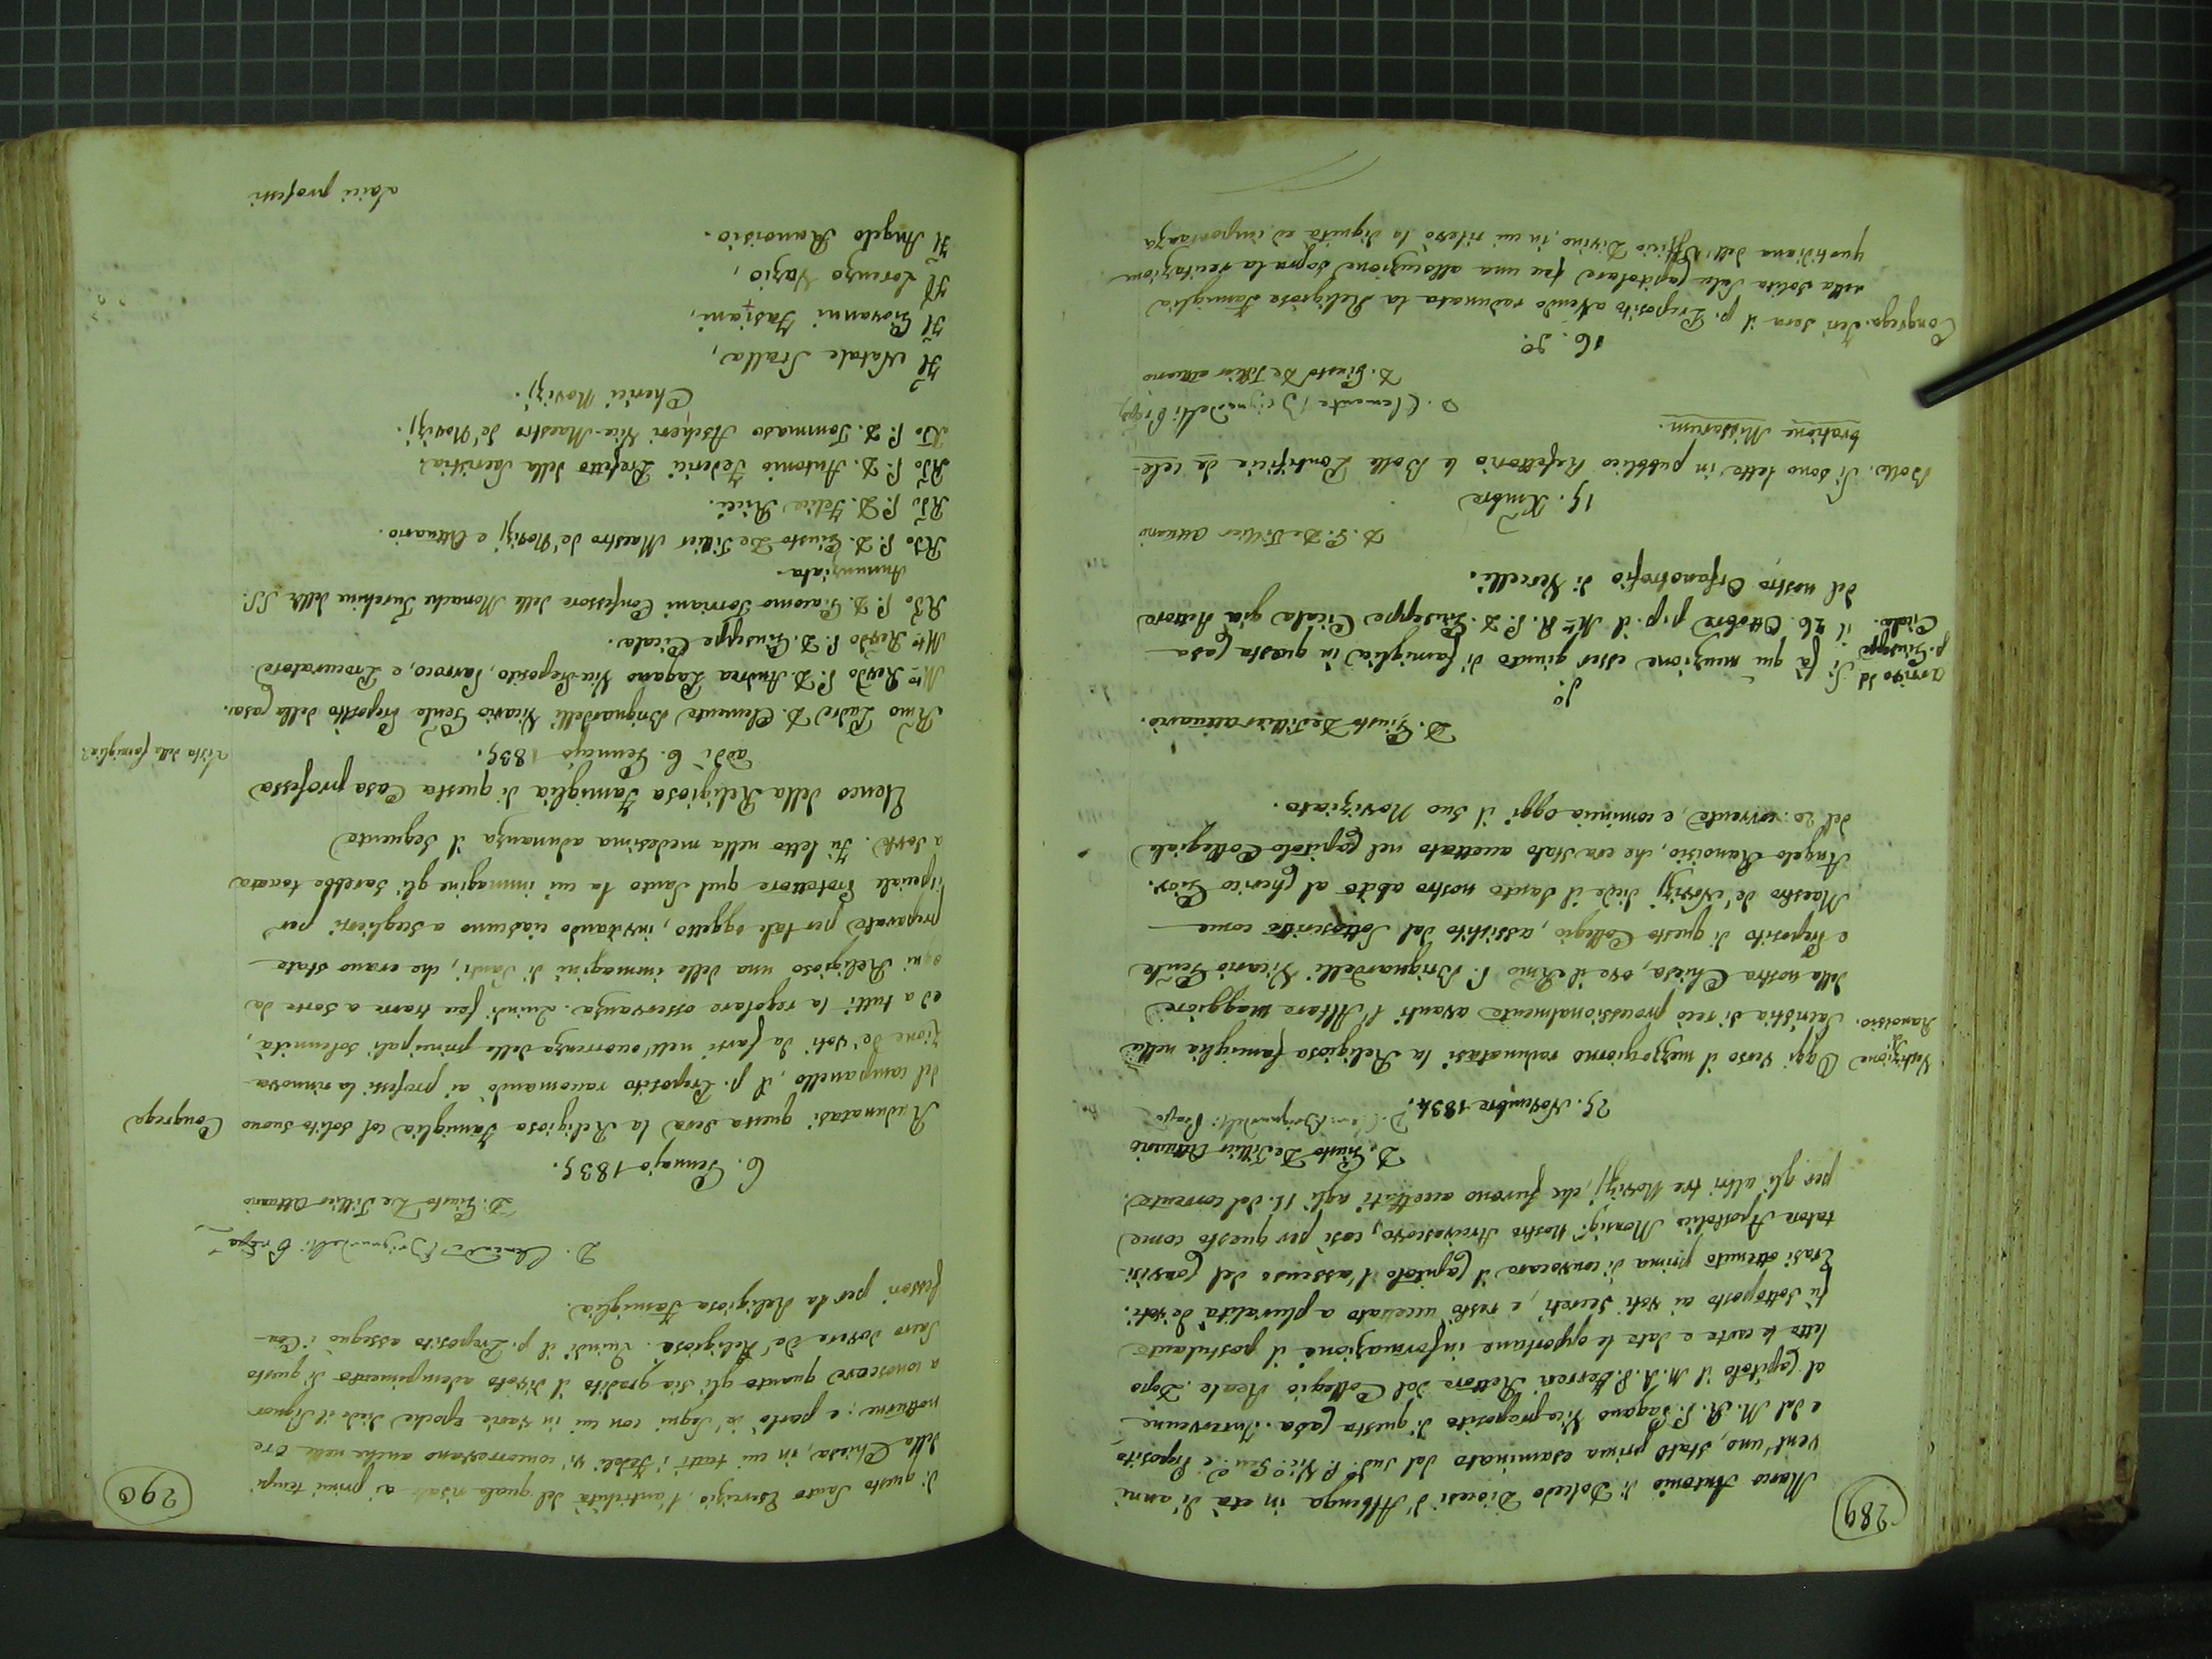 289
Marco Antonio di Dolcedo Diocesi d'Albenga in età di anni
vent'uno, stato prima esaminato dal sud.º P. Vic.º Gen.e e Preposito
e dal M. R. P. Pagano Vicepreposito di questa Casa. Intervenne
al Capitolo il M. R. P. Ferreri Rettore del Collegio Reale. Dopo
lette le carte e date le opportune informazioni il postulante
fù sottoposto ai voti secreti, e restò accettato a pluralità de' voti.
Erasi ottenuto prima di convocare il Capitolo l'assenso del Visi-
tatore Apostolico Monsig.r Nostro Arcivescovo, così per questo come
per gli altri tre Novizj, che furono accettati agli 11. del corrente.
D. Giusto De Tillier Attuario
D. Clem. Brignardelli Prep.to
29. Novembre 1834.
Vestizione
Ranoisio.
Oggi verso il mezzogiorno radunatasi la Religiosa famiglia nella
Sacristia si recò processionalmente avanti l'Altare maggiore
della nostra Chiesa, ove il R.mo P. Brignardelli Vicario Gen.le
e Preposito di questo Collegio, assistito dal Sottoscritto come
Maestro de' Novizj diede il santo nostro abito al Cherico Giov.
Angelo Ranoisio, che era stato accettato nel Capitolo Collegiale
del 20. corrente, e comincia oggi il suo Noviziato.
D. Giusto De Tillier attuario.
d.º
arrivo del
p. Giuseppe
Cicala.
Si fà qui menzione esser giunto di famiglia in questa Casa
il 26. Ottobre p.p. il M.to R. P. D. Giuseppe Cicala già Rettore
del nostro Orfanotrofio di Vercelli.
D. G. De Tillier attuario
15. Xmbre
Bolle.
Si sono lette in pubblico Refettorio le Bolle Pontificie de cele-
bratione Missarum.
D. Clemente Brignardelli Prep.
D. Giusto De Tillier attuario
16. d.º
Congrega.
Jeri sera il p. Preposito avendo radunata la Religiosa Famiglia
nella solita Sala Capitolare fece una allocuzione sopra la recitazione
quotidiana dell'Uffizio Divino, in cui rilevò la dignità ed importanza
290
di questo Santo Esercizio, l'antichità del quale risale ai primi tempi
della Chiesa, in cui tutti i Fedeli vi concorrevano anche nelle ore
notturne; e parlò de' segni con cui in varie epoche diede il Signor
a conoscere quanto gli sia gradito il divoto adempimento di questo
sacro dovere da' Religiosi. Quindi il p. Preposito assegnò i Con-
fessori per la Religiosa Famiglia.
D. Clemente Brignardelli Prep.to
D. Giusto De Tillier Attuario
6. Gennajo 1835.
Congrega
Radunatasi questa sera la Religiosa Famiglia col solito suono
del campanello, il p. Preposito raccomandò ai professi la rinnova-
zione de' voti da farsi nell'occorrenza delle principali solennità,
ed a tutti la regolare osservanza. Quindi fece trarre a sorte da
ogni Religioso una delle immagini di Santi, che erano state
preparate per tale oggetto, invitando ciascuno a scegliersi per
speciale Protettore quel Santo la cui immagine gli sarebbe toccata
a sorte. Fù letto nella medesima adunanza il seguente
Elenco della Religiosa Famiglia di questa Casa professa
addì 6. Gennajo 1835.
Lista della famiglia
R.mo Padre D. Clemente Brignardelli Vicario Gen.le Preposito della Casa.
M.to Rev.do P. D. Andrea Pagano Vice-Preposito, Parroco, e, Procuratore.
M.to Rev.do P. D. Giuseppe Cicala.
R.do P. D. Giacomo Torriani Confessore delle Monache Turchine della SS.
Annunziata.
R.do P. D. Giusto De Tillier Maestro de' Novizj e Attuario.
R.do P. D. Felice Ricci.
R.do P. D. Antonio Federici Prefetto della Sacristia.
R.do P. D. Tommaso Ascheri Vice-Maestro de' Novizj.
Cherici Novizj.
Il Natale Stalla,
Il Giovanni Fasiani,
Il Lorenzo Vazio,
Il Angelo Ranoisio.
Laici professi